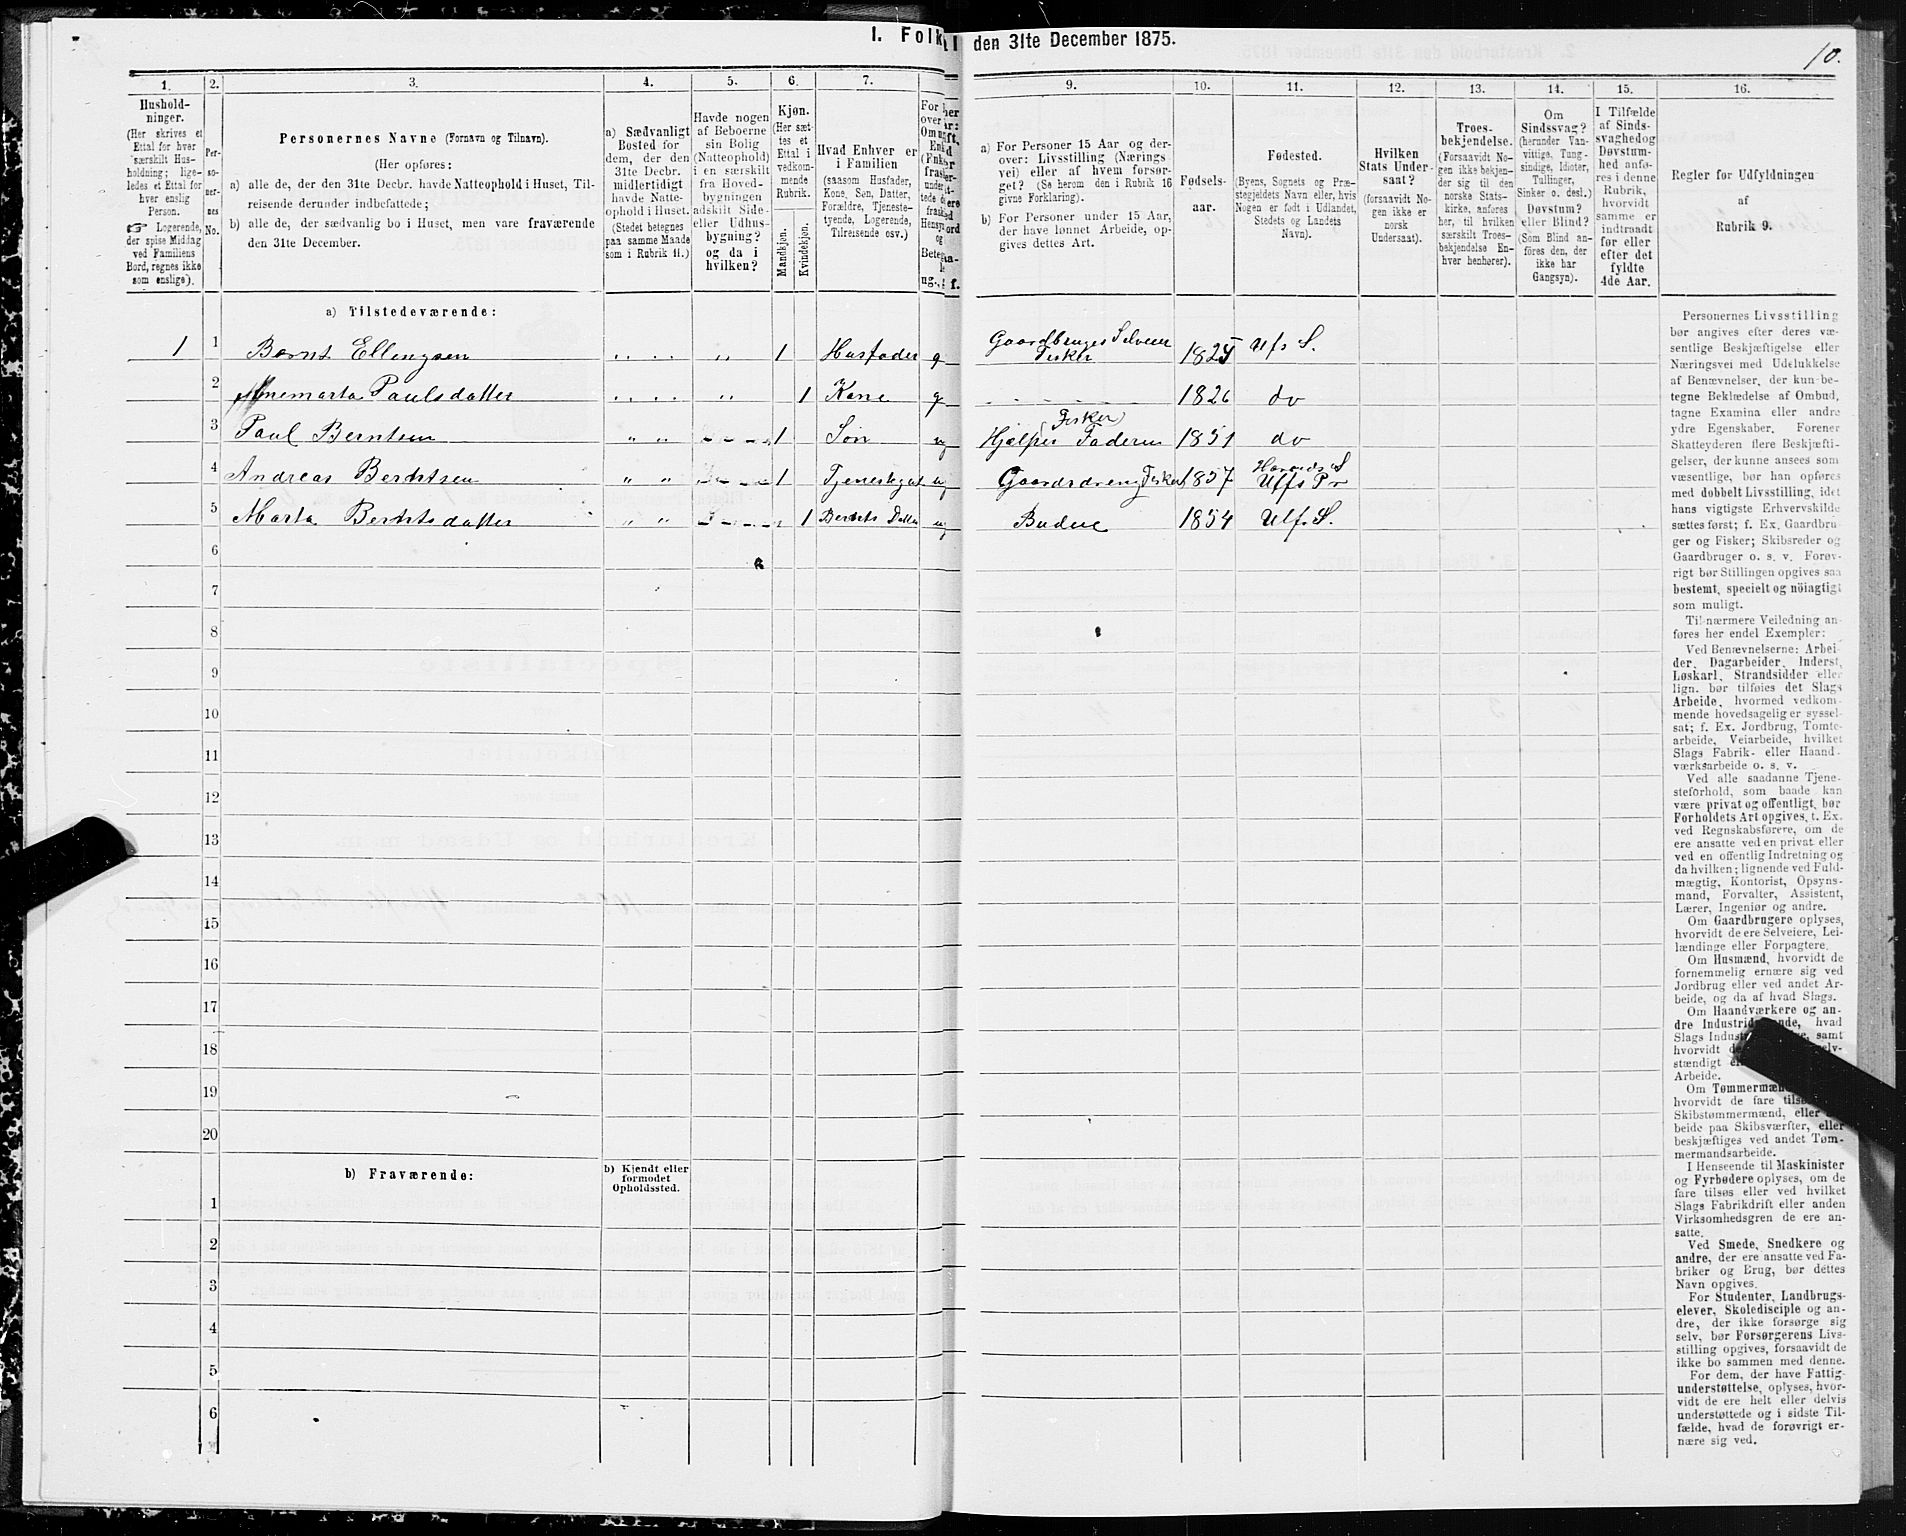 I. Folk
den 31te December 1875.
10.
1.
2.
3.
4.
5.
6.
7.
9.
10.
11.
12.
13.
14.
15.
16.
Hushold-
ninger.
(Her skrives et
Ettal for hver
særskilt Hus-
holdning; lige-
ledes et Ettal for
hver enslig
Person.
☞ Logerende,
der spise Middag
ved Familiens
Bord, regnes ikke
som enslige).
Per-
so-
ner-
nes
No.
Personernes Navne (Fornavn og Tilnavn).
(Her opføres:
a) alle de, der den 31te Decbr. havde Natteophold i Huset, Til-
reisende derunder indbefattede;
b) alle de, der sædvanlig bo i Huset, men vare fraværende
den 31te December.
a) Sædvanligt
Bosted for
dem, der den
31te Decbr.
midlertidigt
havde Natte-
ophold i Huset.
(Stedet betegnes
paa samme Maade
som i Rubrik 11.)
Havde nogen
af Beboerne
sin Bolig
(Natteophold)
i en særskilt
fra Hoved-
bygningen
adskilt Side-
eller Udhus-
bygning?
og da i
hvilken?
Kjøn.
(Her sæt-
tes et
Ettal i
vedkom-
mende
Rubrik.
Mandkjøn.
Kvindekjøn.
Hvad Enhver er
i Familien
(saasom Husfader,
Kone, Søn, Datter,
Forældre, Tjeneste-
tyende, Logerende,
Tilreisende osv.)
a) For Personer 15 Aar og der-
over: Livsstilling (Nærings-
vei) eller af hvem forsør-
get? (Se herom den i Rubrik 16
givne Forklaring).
b) For Personer under 15 Aar,
der have lønnet Arbeide, op-
gives dettes Art.
Fødsels-
aar.
Fødested.
(Byens, Sognets og Præ-
stegjeldets Navn eller, hvis
Nogen er født i Udlandet,
Stedets og Landets
Navn).
Hvilken
Stats Under-
saat?
(forsaavidt No-
gen ikke er
norsk
Undersaat).
Troes-
bekjendelse.
(Forsaavidt No-
gen ikke bekjen-
der sig til den
norske Stats-
kirke, anføres
her, til hvilken
særskilt Troes-
bekjendelse En-
hver henhører).
Om
Sindssvag?
(herunder Van-
vittige, Tung-
sindige, Idioter,
Tullinger,
Sinker o. desl.)
Døvstum?
eller Blind?
(Som Blind an-
føres den, der
ikke har
Gangsyn).
I Tilfælde
af Sinds-
svaghed og
Døvstum-
hed anfø-
res i denne
Rubrik,
hvorvidt
samme er
indtraadt
før eller
efter det
fyldte
4de Aar.
Regler for Udfyldningen
af
Rubrik 9.
a) Tilstedeværende:
1 1 Bernt Ellingsen „ „ „ 1 Husfader g Gaardbruger Selveier Fisker 1825 Ulfs S.
2 Annemarta Paulsdatter „ „ „ 1 Kone g 1826 do
3 Paul Berntsen „ „ 1 Søn u Hjælper Faderen Fisker 1851 do
4 Andreas Berntsen „ „ 1 Tjenestegut u Gaardsdreng Fisker 1857 Ulfs Pr
5 Marta Berntsdatter „ „ 1 Bernts Datter u Budeie 1854 Ulfs S.
6
7
8
9
10
11
12
13
14
15
16
17
18
19
20
b) Fraværende:
b) Kjendt eller
formodet
Opholdssted.
1
2
3
4
5
6
Personernes Livsstilling
bør angives efter deres væ-
sentlige Beskjæftigelse eller
Næringsvei med Udelukkelse
af Benævnelser, der kun be-
tegne Beklædelse af Ombud,
tagne Examina eller andre
ydre Egenskaber. Forener
Skatteyderen flere Beskjæfti-
gelser, der kunne ansees som
væsentlige, bør han opføres
med dobbelt Livsstilling, idet
hans vigtigste Erhvervskilde
sættes først; f. Ex. Gaardbru-
ger og Fisker; Skibsreder og
Gaardbruger o. s. v. Forøv-
rigt bør Stillingen opgives saa
bestemt, specielt og nöiagtigt
som muligt.
Til nærmere Veiledning an-
føres her endel Exempler:
Ved Benævnelserne: Arbei-
der, Dagarbeider, Inderst,
Løskarl, Strandsidder eller
lign. bør tilføies det Slags
Arbeide, hvormed vedkom-
mende hovedsagelig er syssel-
sat; f. Ex. Jordbrug, Tomte-
arbeide, Veiarbeide, hvilket
Slags Fabrik- eller Haand-
værksarbeide o. s. v.
Ved alle saadanne Tjene-
steforhold, som baade kan
være privat og offentligt, bør
Forholdets Art opgives, t. Ex.
ved Regnskabsførere, om de
ere ansatte ved en privat eller
ved en offentlig Indretning og
da hvilken; lignende ved Fuld-
mægtig, Kontorist, Opsyns-
mand, Forvalter, Assistent,
Lærer, Ingeniør og andre.
Om Gaardbrugere oplyses,
hvorvidt de ere Selveiere, Lei-
lændinge eller Forpagtere.
Om Husmænd, hvorvidt de
fornemmelig ernære sig ved
Jordbrug eller ved andet Ar-
beide, og da af hvad Slags.
Om Haandværkere og an-
dre Industri hvad
Slags samt
hvorvidt
stændigt
Arbeide.
Om Tømmermænd
hvorvidt de fare
Skibstømmermænd, eller
beide paa Skibsværfter, eller
beskjæftiges ved andet Tøm-
mermandsarbeide.
I Henseende til Maskinister
og Fyrbødere oplyses, om de
fare tilsøs eller ved hvilket
Slags Fabrikdrift eller anden
Virksomhedsgren de ere an-
satte.
Ved Smede, Snedkere og
andre, der ere ansatte ved Fa-
briker og Brug, bør dettes
Navn opgives.
For Studenter, Landbrugs-
elever, Skoledisciple og an-
dre, der ikke forsørge sig
selv, bør Forsørgerens Livs-
stilling opgives, forsaavidt de
ikke bo sammen med denne.
For dem, der have Fattig-
understøttelse, oplyses, hvor-
vidt de ere helt eller delvis
understøttede og i sidste Til-
fælde, hvad de forøvrigt er-
nære sig ved.